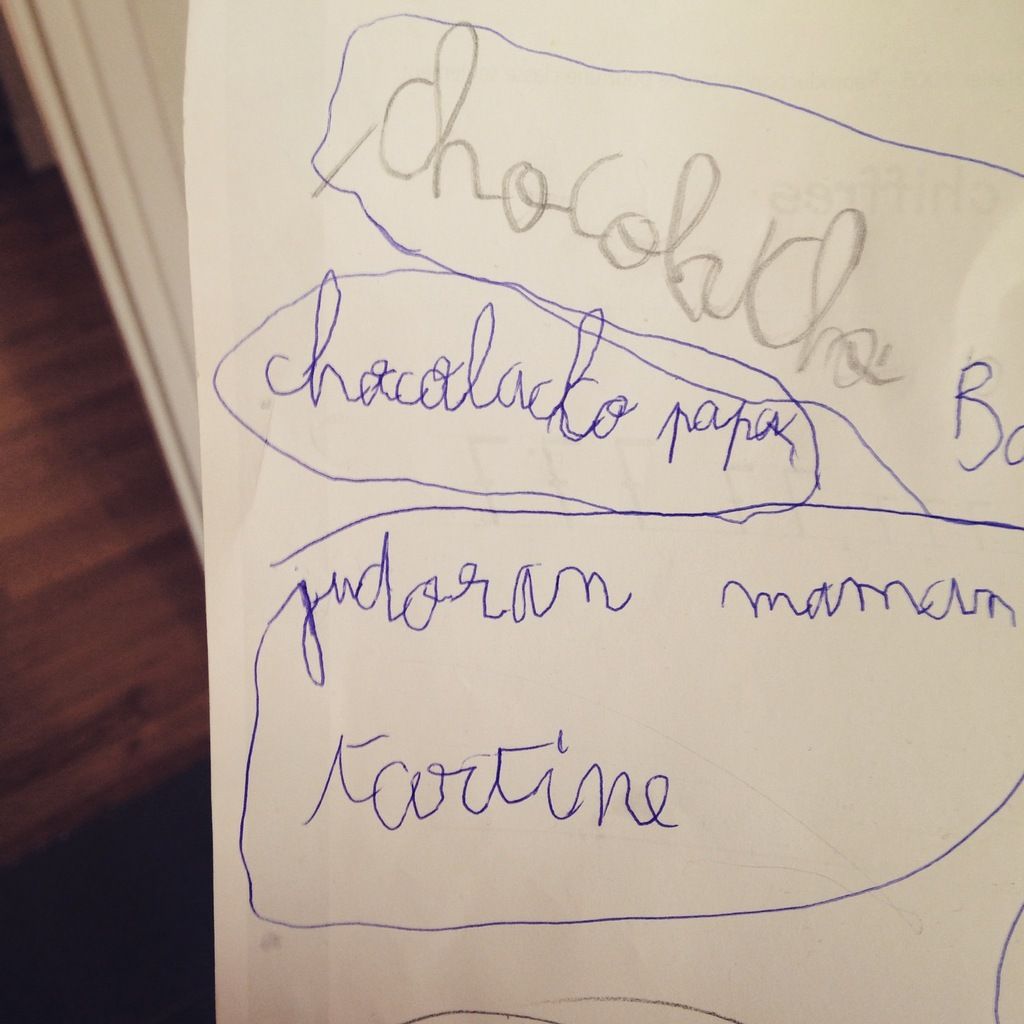 chocolat cho
chocolacho papa
Bo
judoran maman
tartine
chiffres